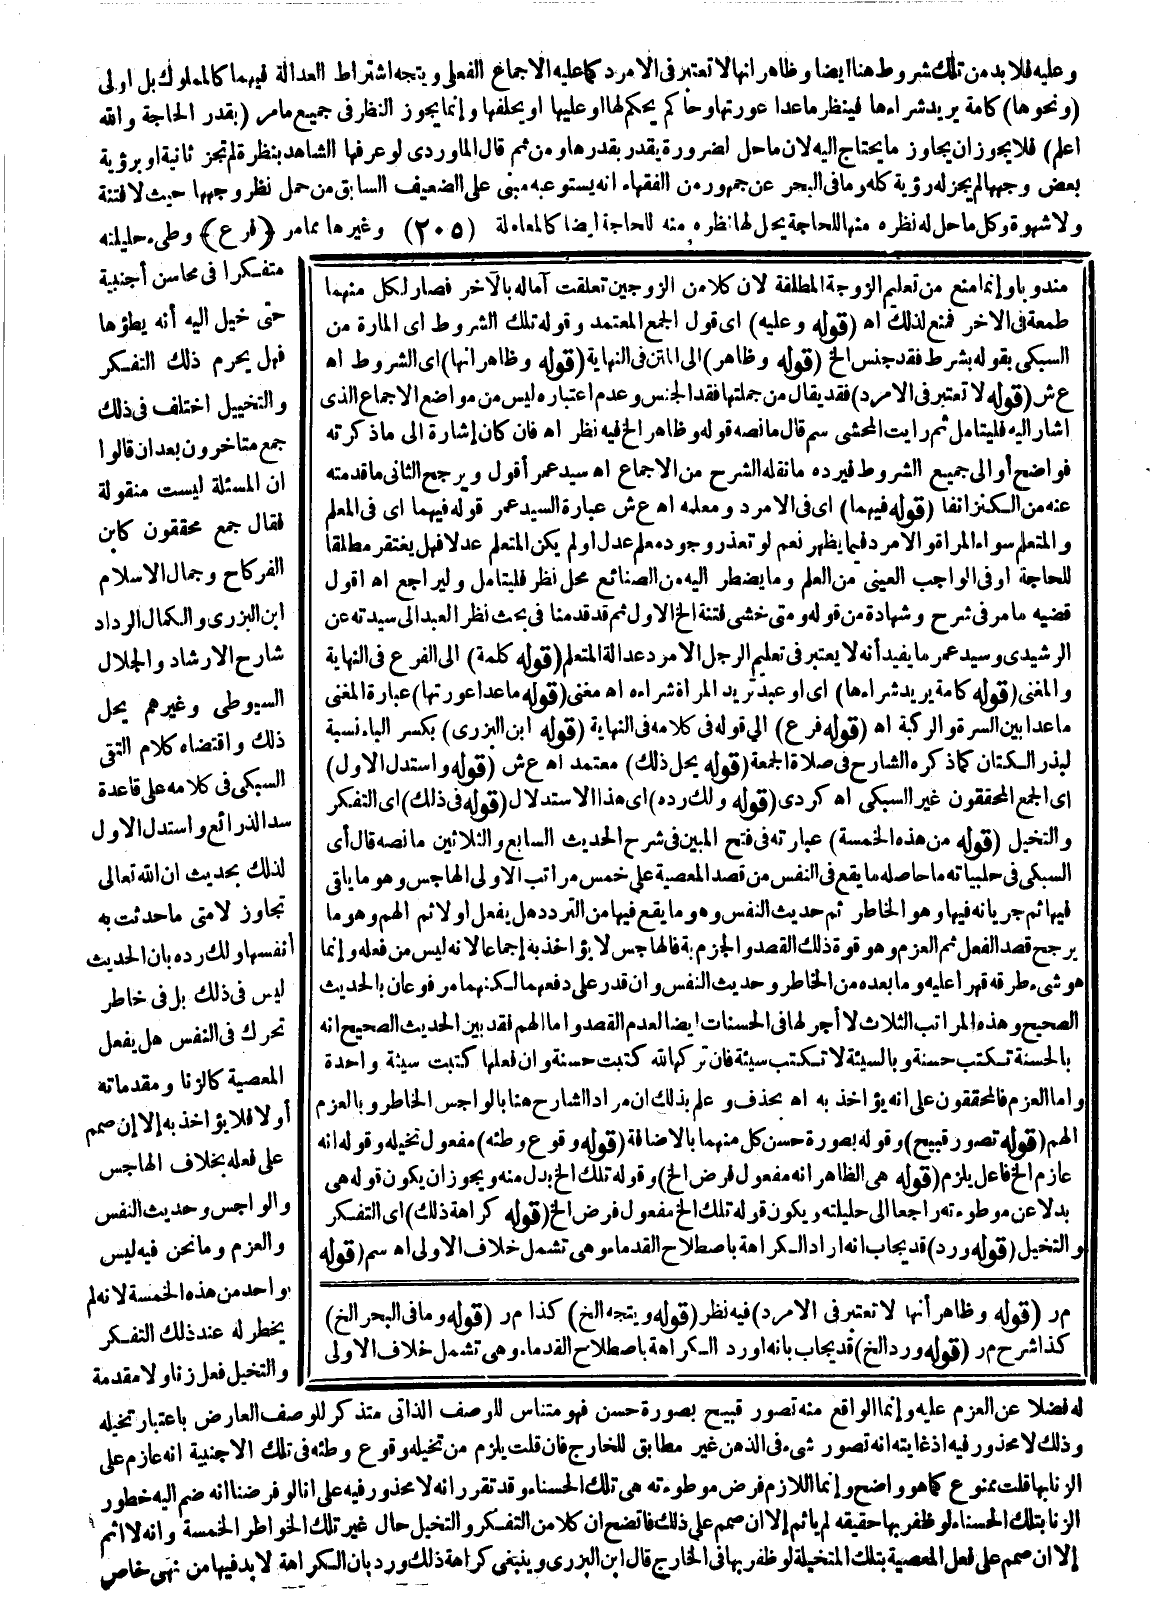 وعليه فلا بد من تلك شروط هنا ايضا وظاهر انها لا تعتبر فى الامرد كما عليه الاجماع الفعلى ويتجه اشتراط العدالة فيهما كالمملوك بل اولى
(ونحوها) كامة يريد شراءها فينظر ما عدا عورتها وحاكم يحكم لها او عليها او يحلفها وانما يجوز النظر فى جميع ما مر (بقدر الحاجة والله
اعلم) فلا يجوز ان يجاوز ما يحتاج اليه لان ما حل لضرورة يقدر بقدرها ومن ثم قال الماوردى لو عرفها الشاهد بنظرة لم تجز ثانية او برؤية
بعض وجهها لم يجز له رؤية كله وما فى البحر عن جمهور من الفقهاء انه يستوعبه مبنى على الضعيف السابق من حمل نظر وجهها حيث لا فتنة
ولا شهوة وكل ما حل له نظره منها للحاجة يحل لها نظره منه للحاجة ايضا كالمعاملة (٢٠٥) وغيرها مما مر (فرع) وطىء حليلته
متفكرا فى محاسن أجنبية
حتى خيل اليه أنه يطؤها
فهل يحرم ذلك التفكر
والتخييل اختلف فى ذلك
جمع متاخرون بعد ان قالوا
ان المسئلة ليست منقولة
فقال جمع محققون كابن
الفركاح وجمال الاسلام
ابن البزرى والكمال الرداد
شارح الارشاد والجلال
السيوطى وغيرهم يحل
ذلك واقتضاه كلام التقى
السبكى فى كلامه على قاعدة
سد الذرائع واستدل الاول
لذلك بحديث ان الله تعالى
تجاوز لامتى ما حدثت به
أنفسها ولك رده بان الحديث
ليس فى ذلك بل فى خاطر
تحرك فى النفس هل يفعل
المعصية كالزنا ومقدماته
أولا فلا يؤاخذ به إلا إن صمم
على فعله بخلاف الهاجس
والواجس وحديث النفس
والعزم وما نحن فيه ليس
بواحد من هذه الخمسة لانه لم
يخطر له عند ذلك التفكر
والتخيل فعل زنا ولا مقدمة
مندوبا وانما منع من تعليم الزوجة المطلقة لان كلا من الزوجين تعلقت آماله بالآخر فصار لكل منهما
طمعة فى الاخر فمنع لذلك اه (قوله وعليه) اى قول الجمع المعتمد وقوله تلك الشروط اى المارة من
السبكى بقوله بشرط فقد جنس الخ (قوله وظاهر) الى المتن فى النهاية (قوله وظاهر انها) اى الشروط اه
ع ش (قوله لا تعتبر فى الامرد) فقد يقال من جملتها فقد الجنس وعدم اعتباره ليس من مواضع الاجماع الذى
اشار اليه فليتامل ثم رايت المحشى سم قال ما نصه قوله وظاهر الخ فيه نظر اه فان كان إشارة الى ما ذكرته
فواضح أو الى جميع الشروط فيرده ما نقله الشرح من الاجماع اه سيد عمر أقول ويرجح الثانى ما قدمته
عنه من الكنز انفا (قوله فيهما) اى فى الامرد ومعلمه اه ع ش عبارة السيد عمر قوله فيهما اى فى المعلم
والمتعلم سواء المراة والامرد فيما يظهر نعم لو تعذر وجود معلم عدل او لم يكن المتعلم عدلا فهل يغتفر مطلقا
للحاجة او فى الواجب العينى من العلم وما يضطر اليه من الصنائع محل نظر فليتامل وليراجع اه اقول
قضيه ما مر فى شرح وشهادة من قوله ومتى خشى فتنة الخ الاول ثم قد قدمنا فى بحث نظر العبد الى سيدته عن
الرشيدى وسيد عمر ما يفيد أنه لا يعتبر فى تعليم الرجل الامرد عدالة المتعلم (قوله كلمة) الى الفرع فى النهاية
والمغنى (قوله كامة يريد شراءها) اى او عبد تريد المراة شراءه اه مغنى (قوله ما عدا عورتها) عبارة المغنى
ما عدا بين السرة والركبة اه (قوله فرع) الي قوله فى كلامه فى النهاية (قوله ابن البزرى) بكسر الباء نسبة
لبذر الكتان كما ذكره الشارح فى صلاة الجمعة (قوله يحل ذلك) معتمد اه ع ش (قوله واستدل الاول)
اى الجمع المحققون غير السبكى اه كردى (قوله ولك رده) اى هذا الاستدلال (قوله فى ذلك) اى التفكر
والتخيل (قوله من هذه الخمسة) عبارته فى فتح المبين فى شرح الحديث السابع والثلاثين ما نصه قال أى
السبكى فى حلبياته ما حاصله ما يقع فى النفس من قصد المعصية على خمس مراتب الاولى الهاجس وهو ما يلقى
فيها ثم جريانه فيها وهو الخاطر ثم حديث النفس وهو ما يقع فيها من التردد هل يفعل او لا ثم الهم وهو ما
يرجح قصد الفعل ثم العزم وهو قوة ذلك القصد والجزم به فالهاجس لا يؤاخذ به إجماعا لانه ليس من فعله وإنما
هو شىء طرقه قهرا عليه وما بعده من الخاطر وحديث النفس وان قدر على دفعهما لكنهما مرفوعان بالحديث
الصحيح وهذه المراتب الثلاث لا أجر لها فى الحسنات ايضا لعدم القصد واما الهم فقد بين الحديث الصحيح انه
بالحسنة تكتب حسنة وبالسيئة لا تكتب سيئة فان تركها لله كتبت حسنة وان فعلها كتبت سيئة واحدة
واما العزم فالمحققون على انه يؤاخذ به اه بحذف وعلم بذلك ان مراد الشارح هنا بالواجس الخاطر وبالعزم
الهم (قوله تصور قبيح) وقوله بصورة حسن كل منهما بالاضافة (قوله وقوع وطئه) مفعول تخيله وقوله انه
عازم الخ فاعل يلزم (قوله هى الظاهر انه مفعول فرض الخ) وقوله تلك الخ بدل منه ويجوز ان يكون قوله هى
بدلا عن موطوءته راجعا الى حليلته ويكون قوله تلك الخ مفعول فرض الخ (قوله كراهة ذلك) اى التفكر
والتخيل (قوله ورد) قد يجاب انه اراد الكراهة باصطلاح القدماء وهى تشمل خلاف الاولى اه سم (قوله
م ر (قوله وظاهر أنها لا تعتبر فى الامرد) فيه نظر (قوله ويتجه الخ) كذا م ر (قوله وما فى البحر الخ)
كذا شرح م ر (قوله ورد الخ) قد يجاب بانه اورد الكراهة باصطلاح القدماء وهى تشمل خلاف الاولى
له فضلا عن العزم عليه وإنما الواقع منه تصور قبيح بصورة حسن فهو متناس للوصف الذاتى متذكر للوصف العارض باعتبار تخيله
وذلك لا محذور فيه اذ غايته انه تصور شىء فى الذهن غير مطابق للخارج فان قلت يلزم من تخيله وقوع وطئه فى تلك الاجنبية انه عازم على
الزنا بها قلت ممنوع كما هو واضح وإنما اللازم فرض موطوءته هى تلك الحسناء وقد تقرر انه لا محذور فيه على انا لو فرضنا انه ضم اليه خطور
الزنا بتلك الحسناء لو ظفر بها حقيقه لم يائم إلا ان صمم على ذلك فاتضح ان كلا من التفكر والتخيل حال غير تلك الخواطر الخمسة وانه لا اثم
إلا ان صمم على فعل المعصية بتلك المتخيلة لو ظفر بها فى الخارج قال ابن البزرى وينبغى كراهة ذلك ورد بان الكراهة لا بد فيها من نهى خاص